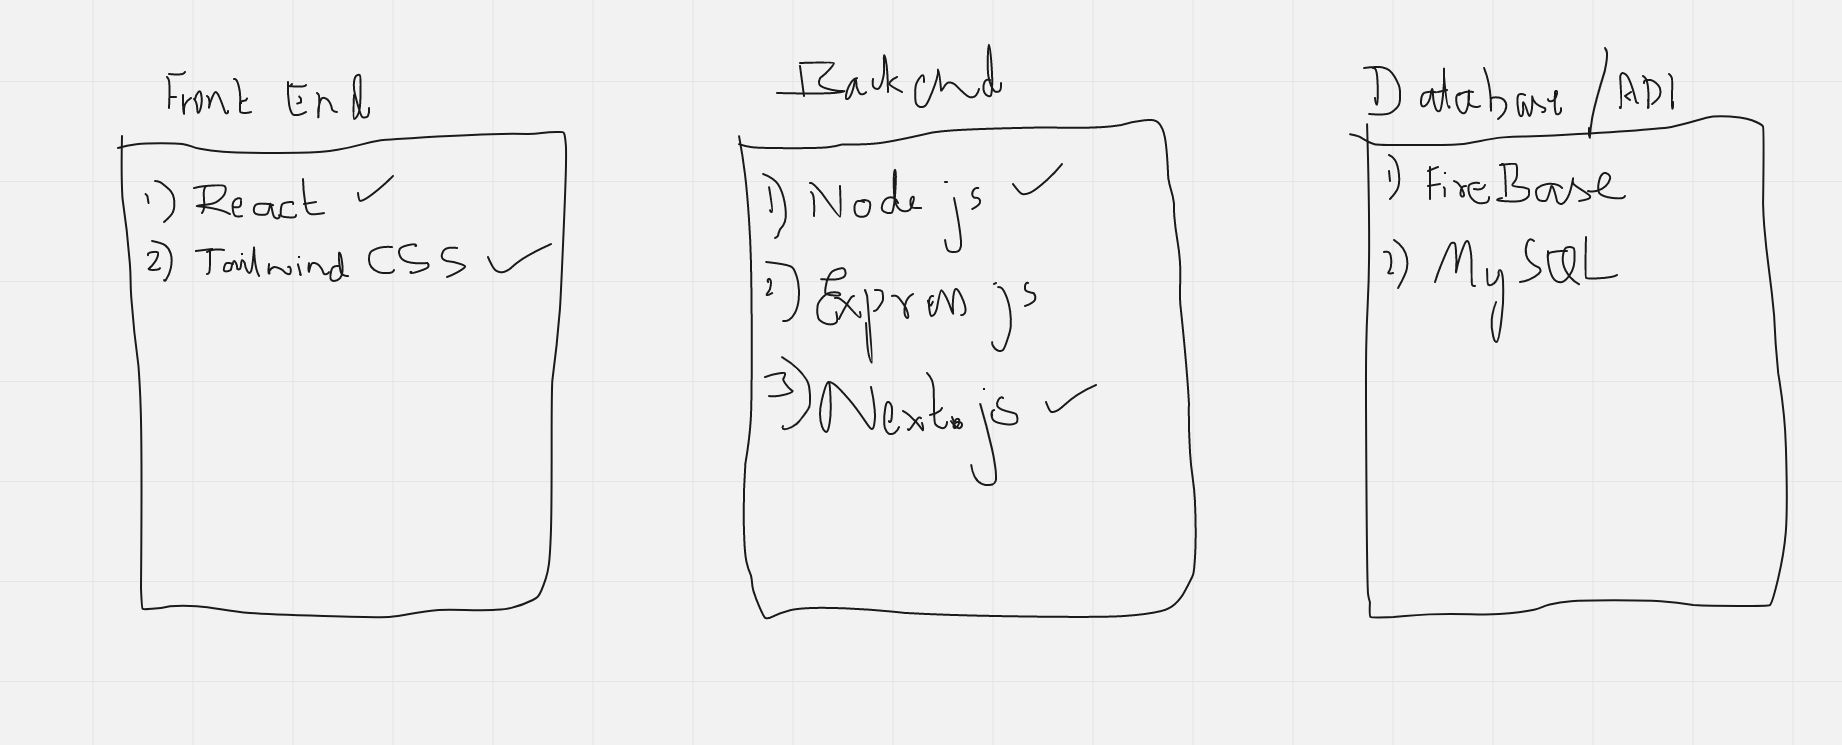 Front End
1) React ✓
2) Tailwind CSS ✓
Backend
1) Node js ✓
2) Express js
3) Next.js ✓
Database / API
1) FireBase
2) MySQL